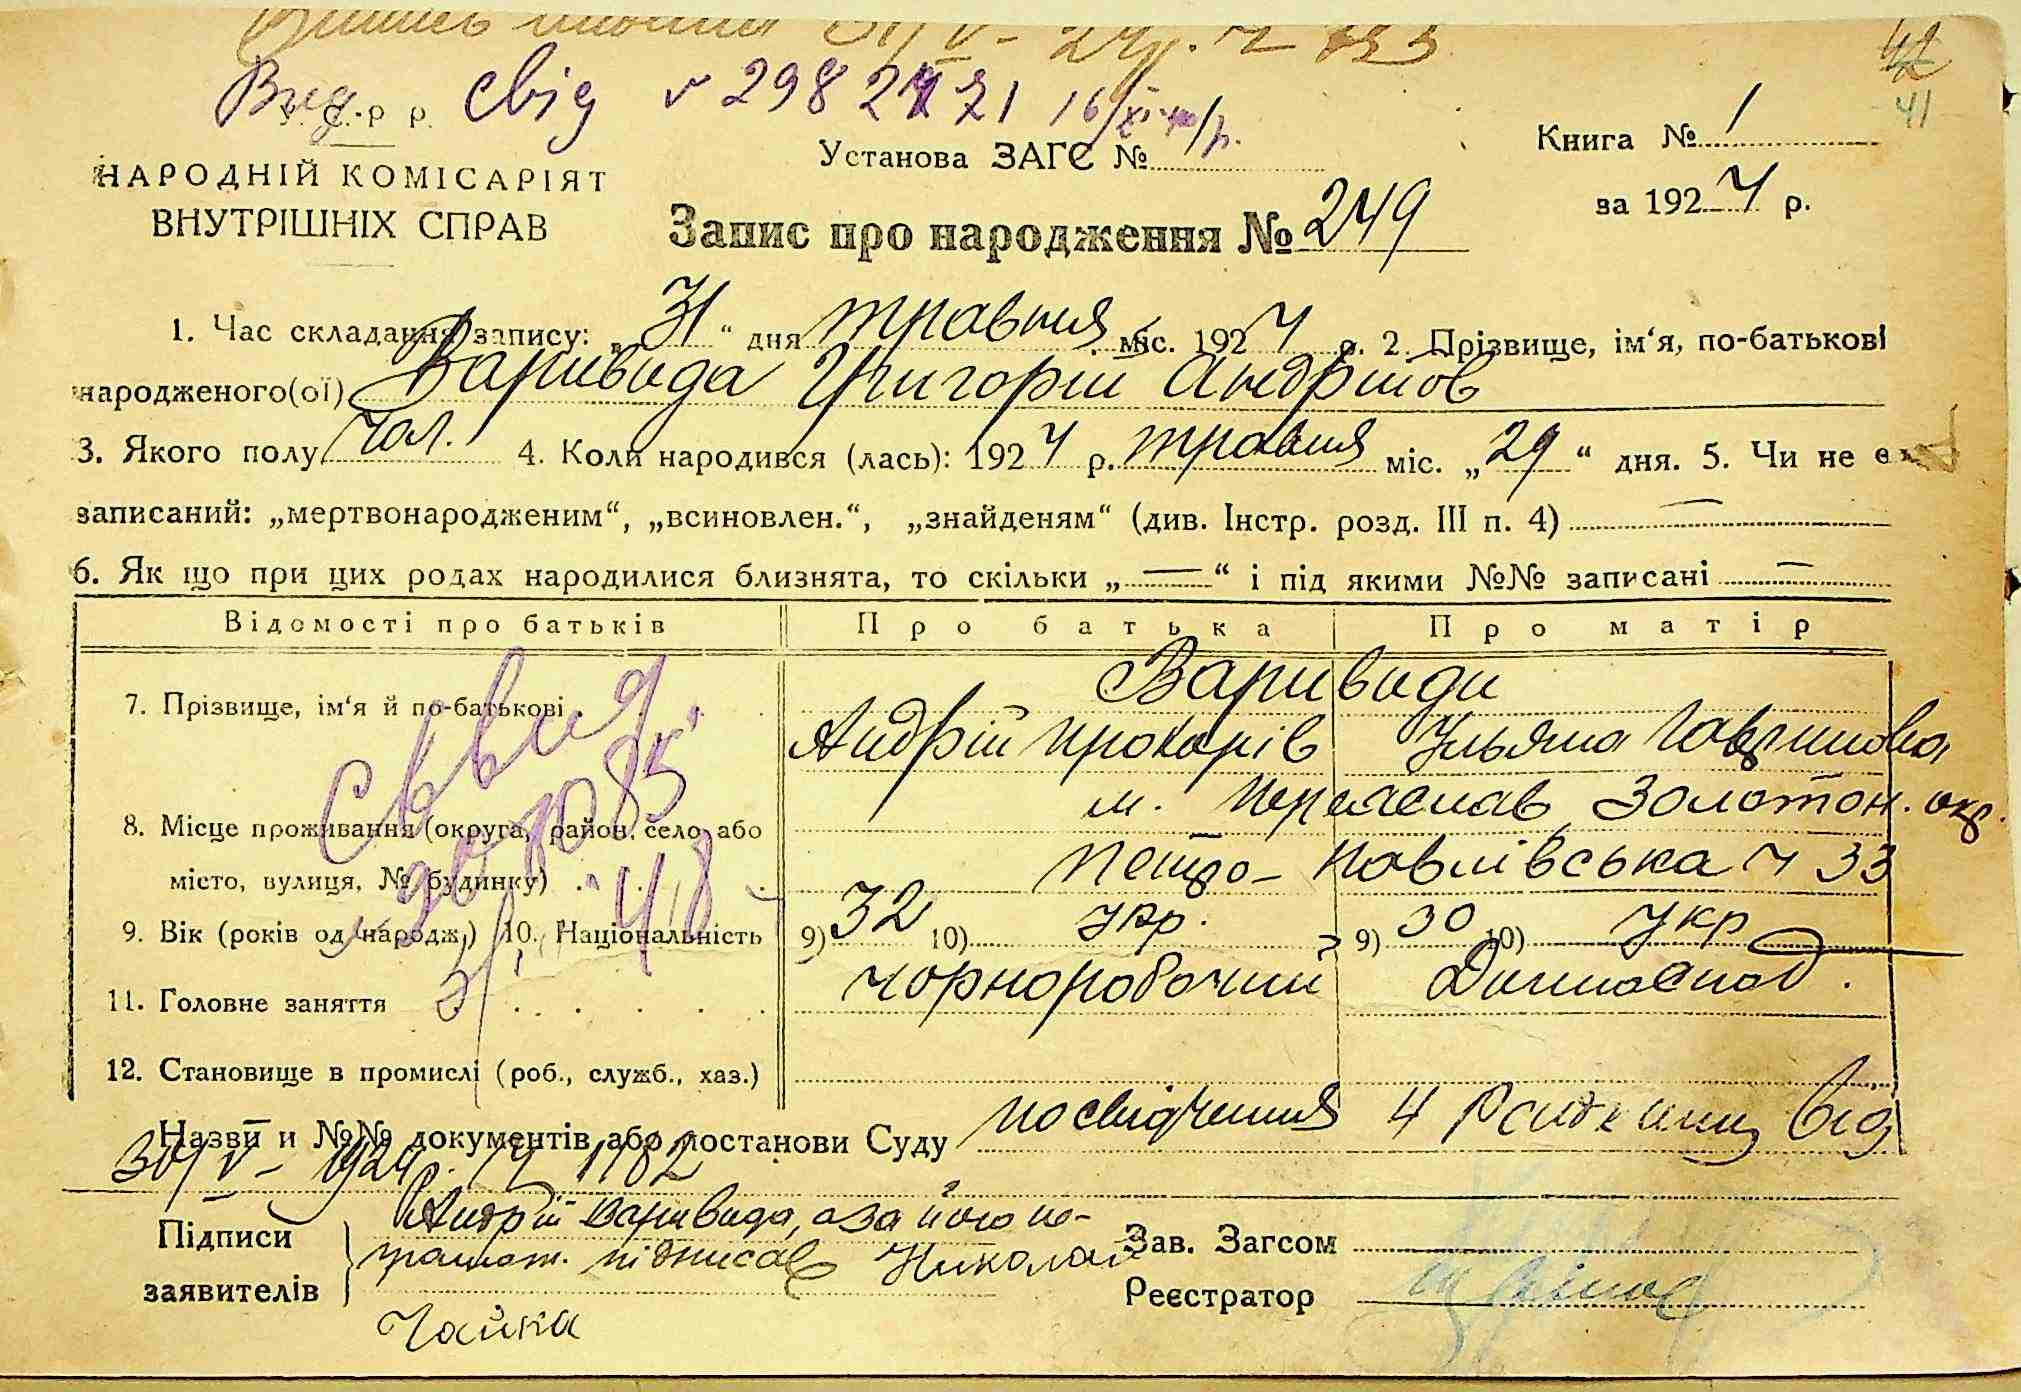 31/V - 24р. ч 833
42
Вид. свід № 298 21 16/XI р.
41
У. С. Р Р.
Установа ЗАГС №
Книга № 1
НАРОДНІЙ КОМІСАРІЯТ
ВНУТРІШНІХ СПРАВ
за 1924 р.
Запис про народження № 249
1. Час складання запису: „31“ дня травня міс. 1924 р. 2. Прізвище, ім‘я, по-батькові
народженого(ої) Варивода Григорій Андріїов
3. Якого полу чол. 4. Коли народився (лась): 1924 р. травня міс. „29“ дня. 5. Чи не є
записаний: „мертвонародженим“, „всиновлен.“, „знайденям“ (див. Інстр. розд. III п. 4) —
6. Як що при цих родах народилися близнята, то скільки „—“ і під якими №№ записані —
Відомості про батьків Про батька Про матір
Вариводи
7. Прізвище, ім‘я й по-батькові
Андрій Прохорів Ульяна Гаврилова
м. Переяслав Золотон. окр.
8. Місце проживання (округа, район, село або
місто, вулиця, № будинку)
Петро-Павлівська ч 33
9. Вік (років од народж.) 10. Національність 9) 32 10) укр. 9) 30 10) укр
11. Головне заняття чорноробочий Домогоспод.
12. Становище в промислі (роб., служб., хаз.)
Назви и №№ документів або постанови Суду посвідчення від
30/V - 1924р. ч 1182
Підписи
заявителів
Андрій Варивода, а за його не-
грамотн. підписав Николай
Чайка
Зав. Загсом
Реєстратор